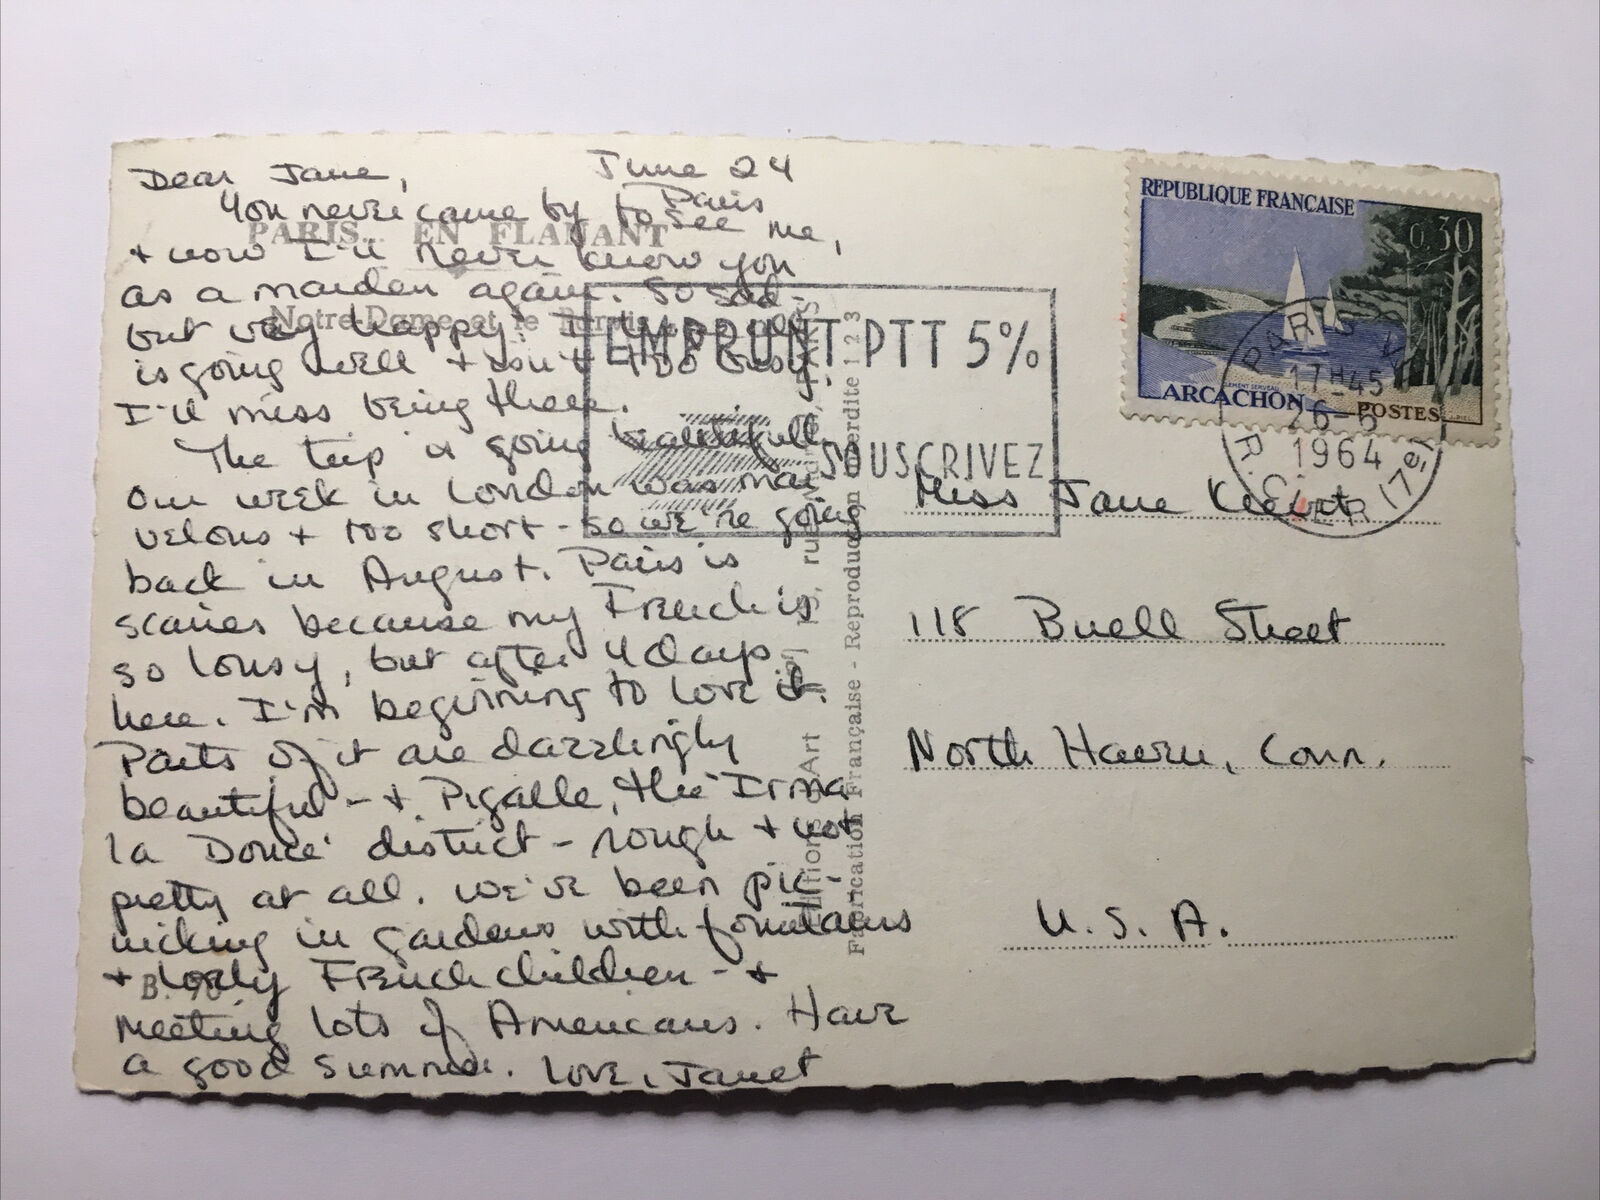 Dear Jane, June 24
Paris
You never came by to see me,
+ now I'll never know you
as a maiden again. So sad -
but very happy!
is going well + isn't too busy.
I'll miss being there.
The trip is going beautifully.
Our week in London was mar-
velous + too short - so we're going
back in August. Paris is
scarier because my French is
so lousy, but after 4 days
here. I'm beginning to love it.
Parts of it are dazzlingly
beautiful - + Pigalle, the "Irma
la Douce" district - rough + not
pretty at all. We've been pic-
nicking in gardens with fountains
+ lovely French children - +
meeting lots of Americans. Have
a good summer. Love, Janet
PARIS... EN FLANANT
Notre-Dame et le
B.
Editions d'Art
Fabrication Française - Reproduction interdite 123
EMPRUNT PTT 5%
SOUSCRIVEZ
REPUBLIQUE FRANÇAISE
0,30
ARCACHON POSTES
PARIS
17H45
26-6
1964
R. (17e)
Miss Jane
118 Buell Street
North Haven, Conn.
U.S.A.